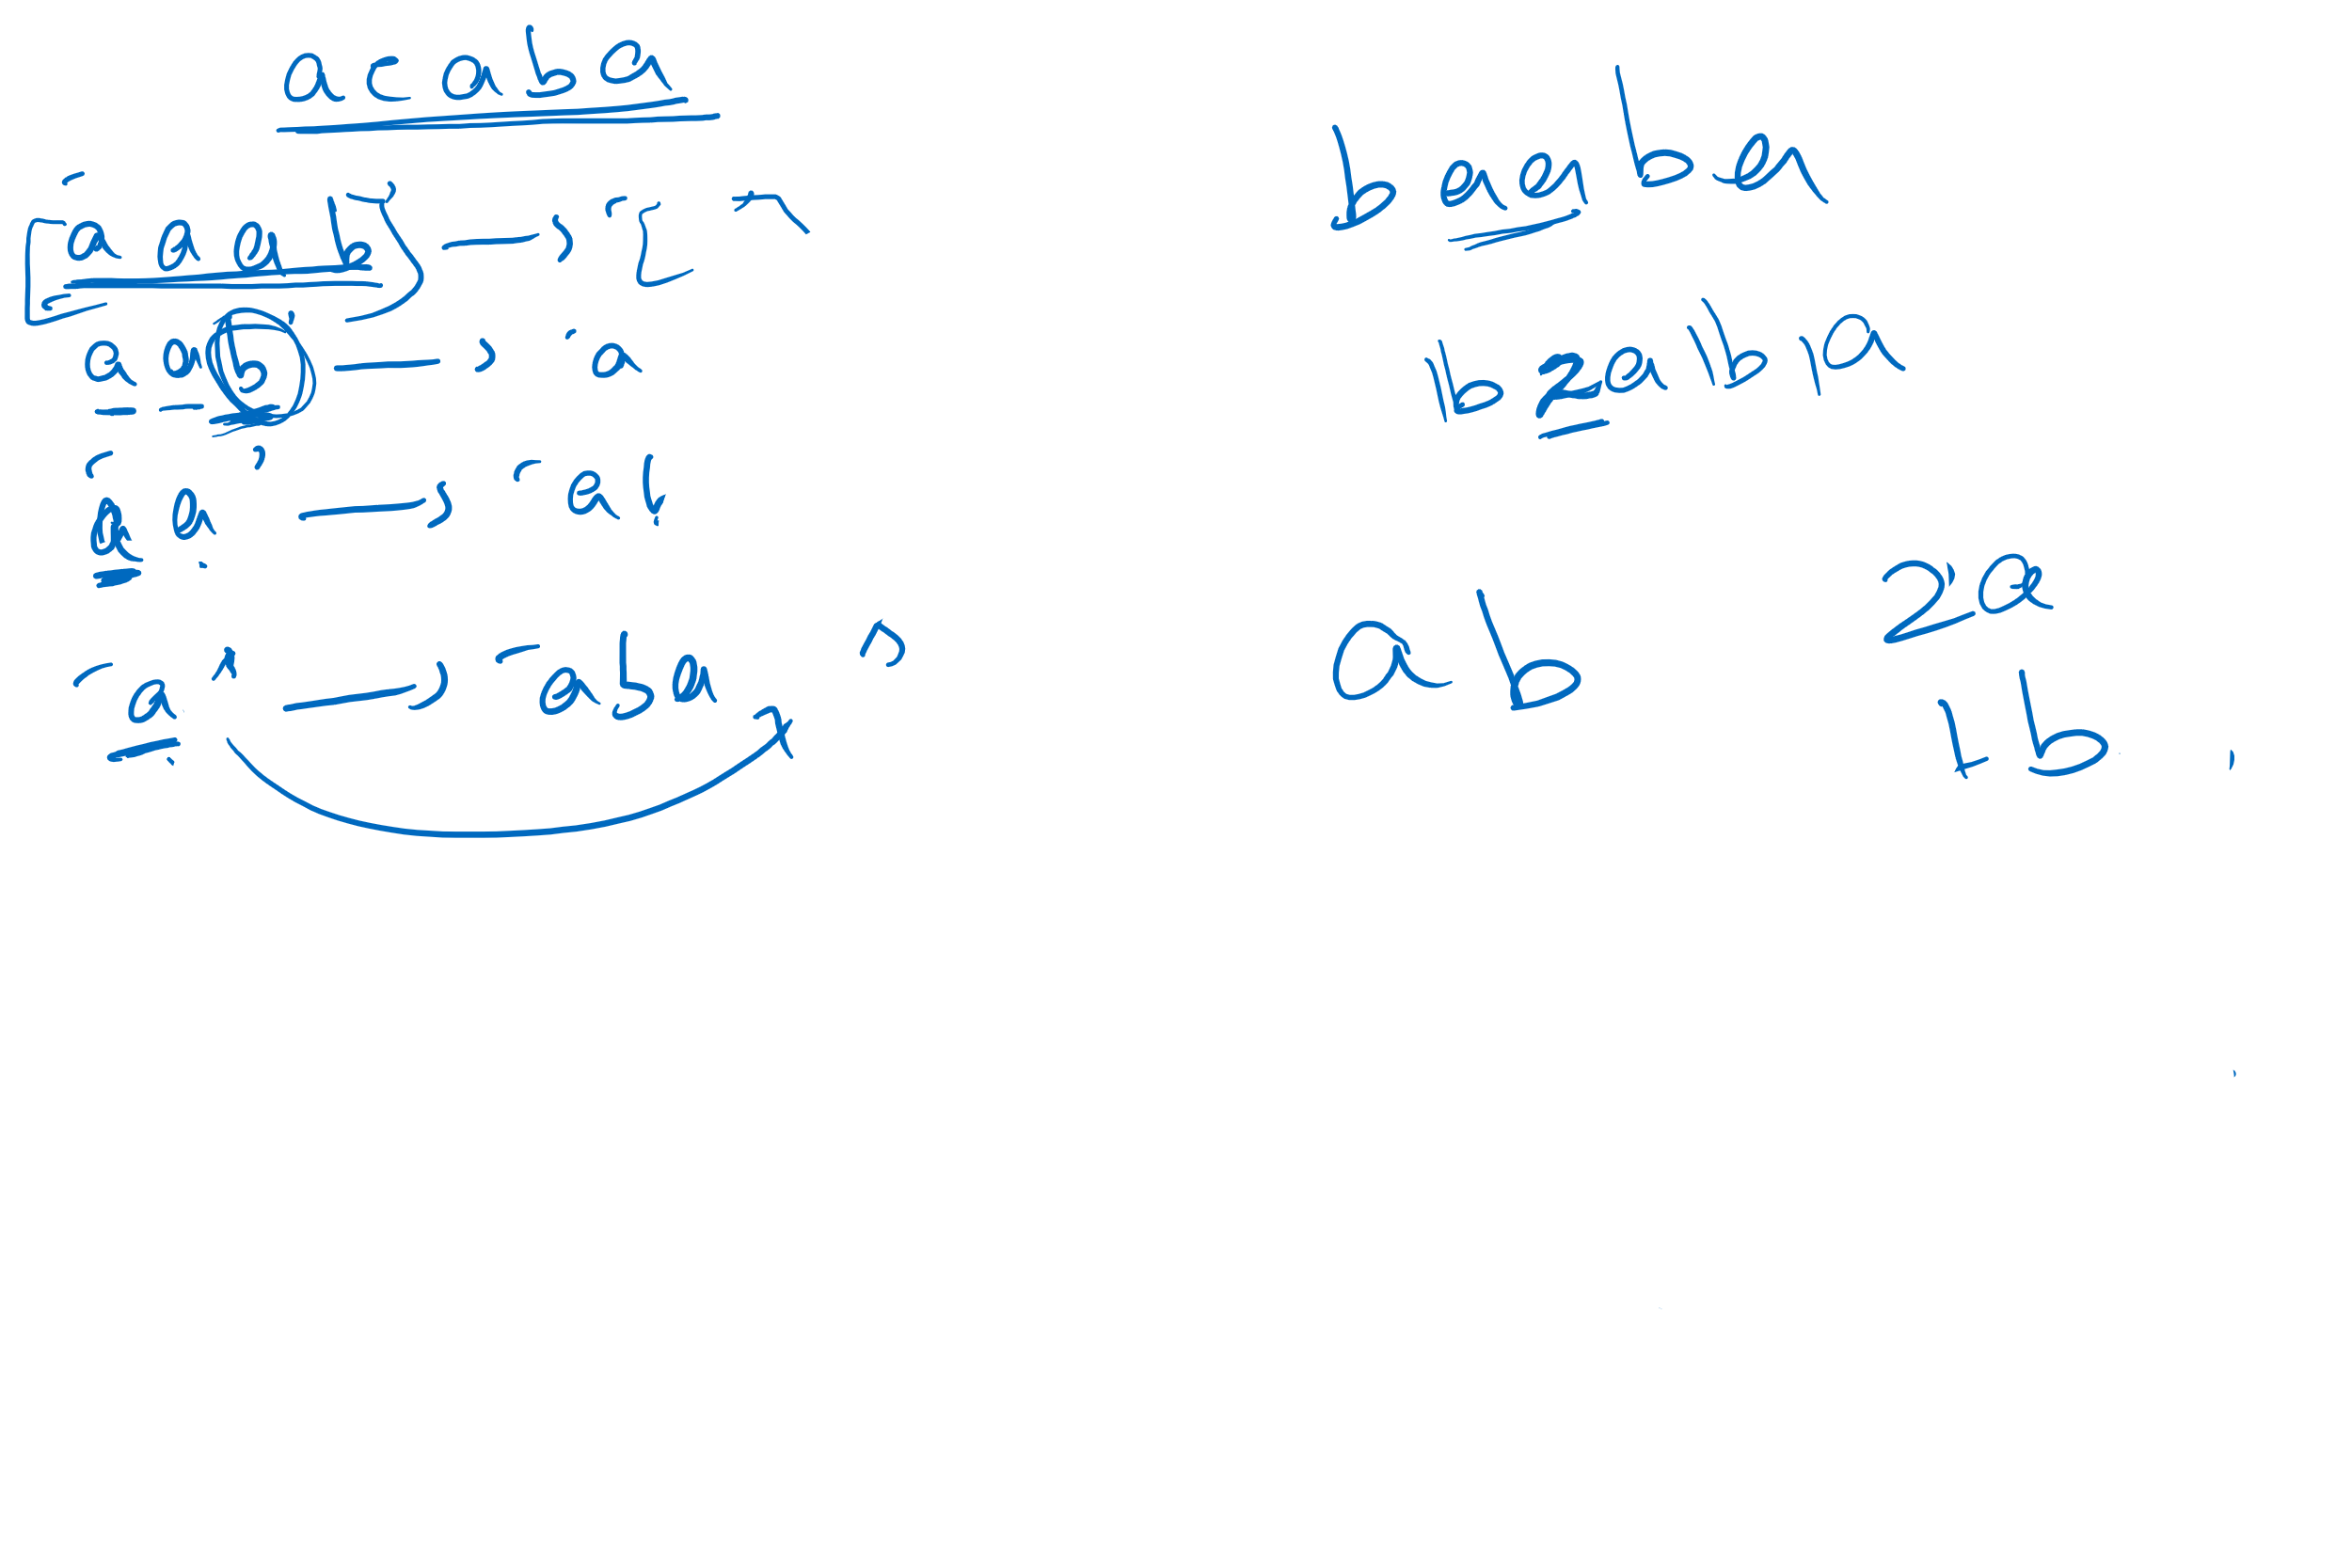 acaba
[aaab] → "[ "
"aab" → "a
"aa" → "ab
"a" → "aba"
baaba
1b2a1b1a
ab
2a
1b